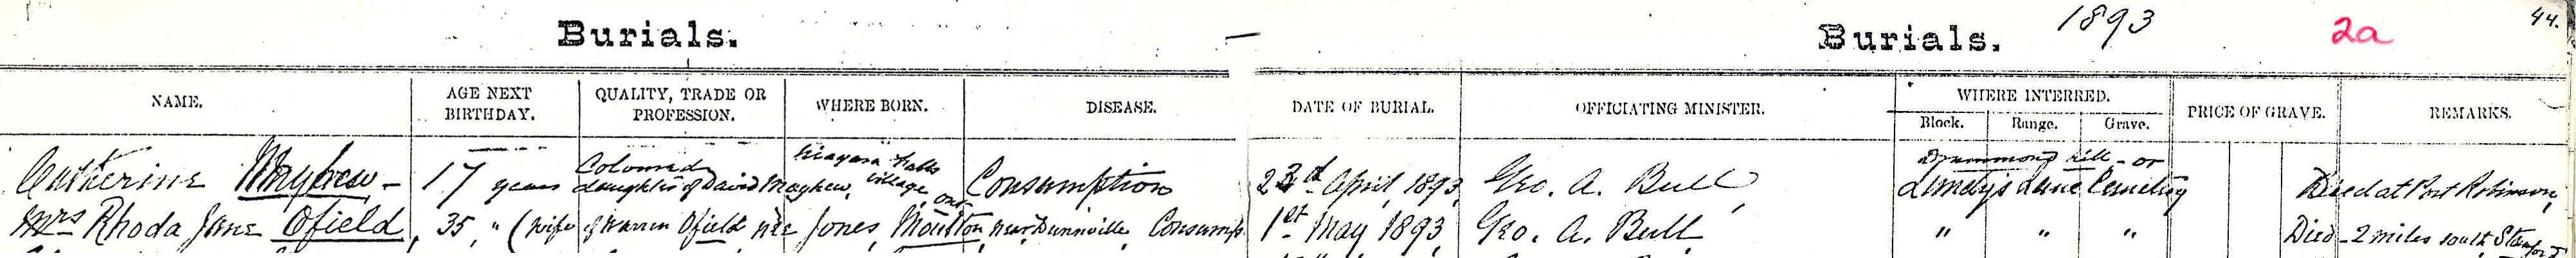 Burials.
Burials. 1893 2a 44.
NAME. AGE NEXT BIRTHDAY. QUALITY, TRADE OR PROFESSION. WHERE BORN. DISEASE. DATE OF BURIAL. OFFICIATING MINISTER. WHERE INTERRED. Block. Range. Grave. PRICE OF GRAVE. REMARKS.
Catherine Mayhew - 17 years Coloured daughter of David Mayhew, Niagara Falls Village, Ont Consumption 23d April, 1893, Geo. A. Bull, Drummond hill - or Lundy's Lane Cemetery Died at Port Robinson,
Mrs Rhoda Jane Ofield, 35 " (wife of Warren Ofield née Jones, Moulton, near Dunnville, Consump 1st May 1893, Geo. A. Bull " " " Died - 2 miles south Stamford